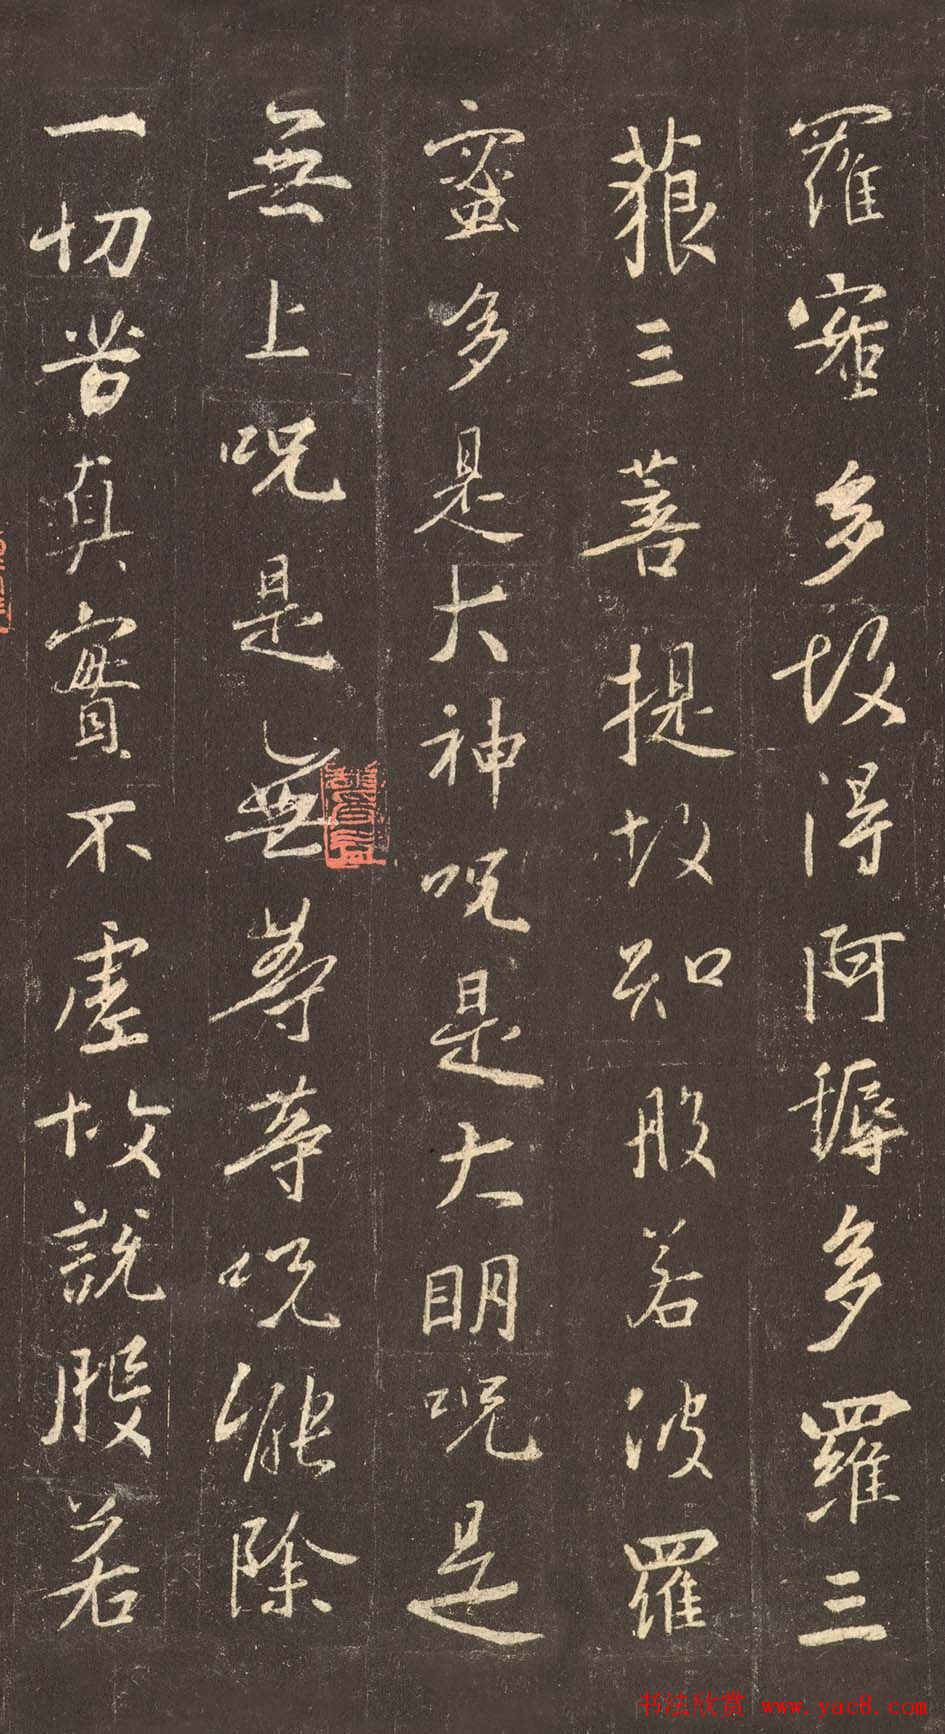 羅蜜多故得阿耨多羅三
藐三菩提故知般若波羅
蜜多是大神咒是大明咒是
無上咒是無等等咒能除
一切苦真實不虛故說般若
书法欣赏 www.yac8.com